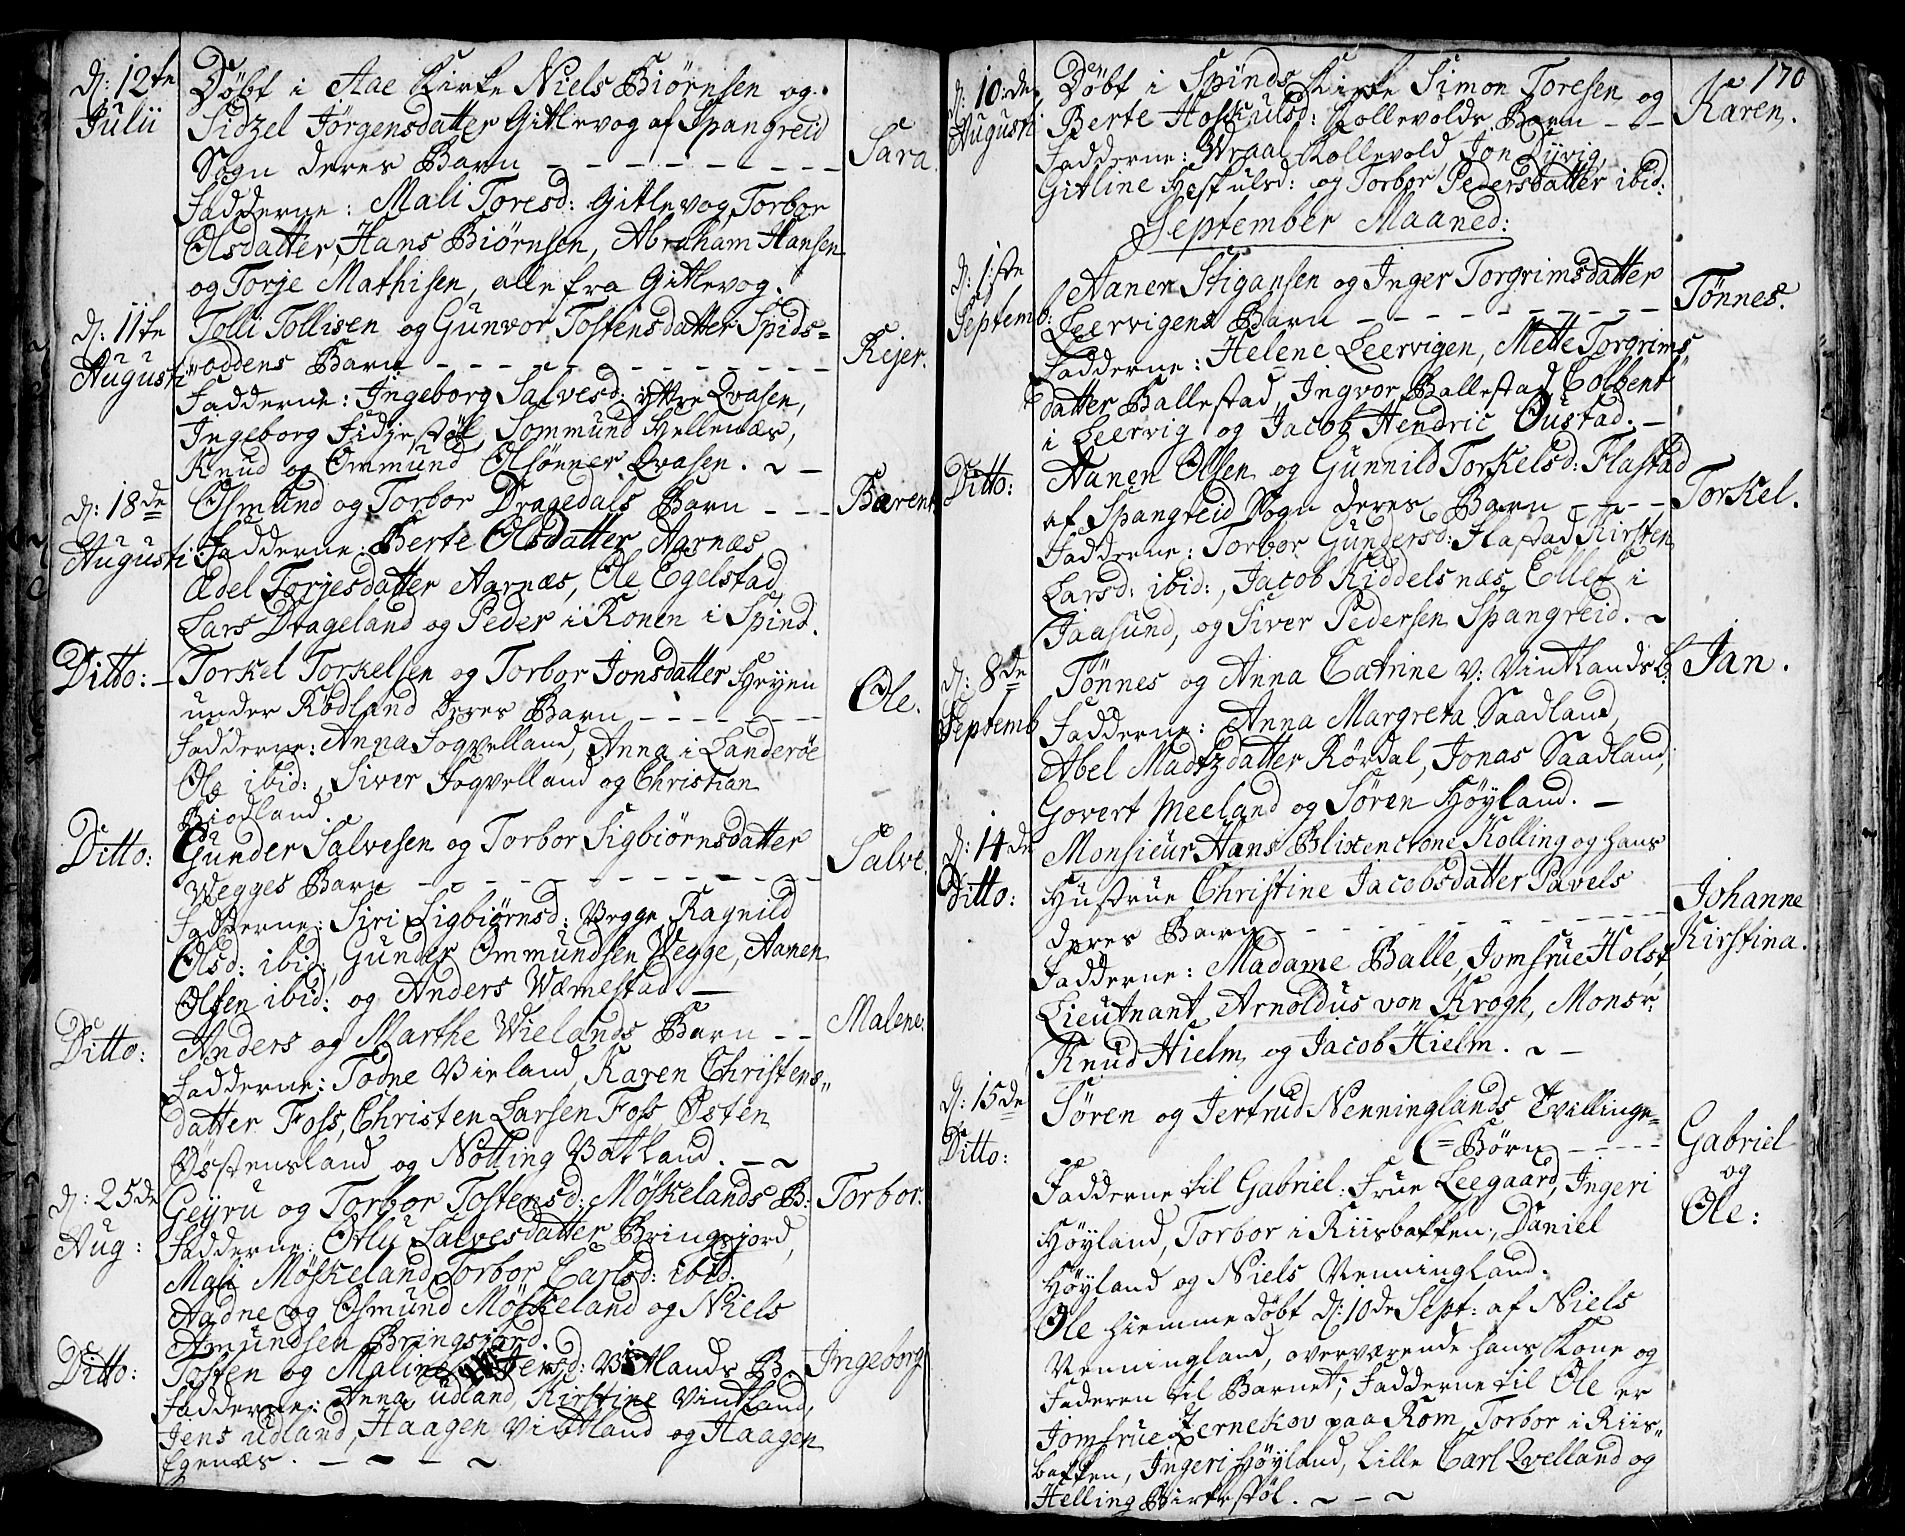 d: 12te Julii
Døbt i Aae Kirke Niels Biørnsen og
Sidzel Jörgensdatter Gitlevog af Spangreid
Sogn deres Barn - - - - - - - -
Sara.
Fadderne: Mali Toresd: Gitlevog, Torbor
Olsdatter, Hans Biørnsen, Abraham Hansen
og Torje Mathisen, alle fra Gitlevog.
d: 11te Augusti
Tolli Tollisen og Gunvor Tostensdatter Spids=
oddens Barn - - - - - - - - - -
Rejer.
Fadderne: Ingeborg Salvesd: yttre Qvasen,
Ingeborg Fidjestøl, Sommund Hellenæs,
Knud og Ommund Olsønner Qvasen. ~ -
d: 18de Augusti
Osmund og Torbor Dragedals Barn - - -
Barent
Fadderne: Berte Olsdatter Aarnæs,
Ædel Torjesdatter Aarnæs, Ole Egelstad,
Lars Drageland og Peder i Ronen i Spind.
Ditto: -
Torkel Torkelsen og Torbor Jonsdatter Heyen
under Rødland deres Barn - - - - - -
Ole.
Fadderne: Anna Foqvelland, Anna i Landerøe
Ole ibid:, Siver Foqvelland og Christian
Biodland.
Ditto:
Gunder Salvesen og Torbor Sigbiörnsdatter
Wegges Barn - - - - - - - - - -
Salve.
Fadderne: Siri Sigbiörnsd: Vegge, Ragnild
Olsd: ibid: Gunder Ommundsen Vegge, Aanen
Olsen ibid: og Anders Wæmestad. -
Ditto:
Anders og Marthe Wielands Barn - -
Malene.
Fadderne: Todne Vieland, Karen Christens„
datter Foss, Christen Larsen Foss, Østen
Østensland og Notting Vatland. - ~
d: 25de Aug:
Geyru og Torbor Tostensd: Möskelands B:
Torbor.
Fadderne: Otlu Salvesdatter Bringsjord,
Mali Möskeland, Torbor Carlsd: ibid.
Aadne og Osmund Möskeland og Niels
Amundsen Bringsjord.
Ditto:
Tosten og Maline Vintlands B.
Ingeborg
Fadderne: Anna udland, Kirstine Vintland,
Jens udland, Haagen Vintland og Haagen
Egenæs. - ~ - ~
170
d: 10:de Augusti
Døbt i Spinds Kirke Simon Toresen og
Berte Hoskulsd: Kollevolds Barn - -
Karen.
Fadderne: Wraal Kollevold, Jon Dyvig,
Gitline Hoskulsd: og Torbor Pedersdatter ibid:
September Maaned:
d: 1:ste Septemb:
Aanen Stigansen og Inger Torgrimsdatter
Leervigens Barn - - - - - - - - -
Tönnes.
Fadderne: Helene Leervigen, Mette Torgrims„
datter Ballestad, Ingvor Ballestad, Colbent
i Leervig og Jacob Hendric Oustad. -
Ditto:
Aanen Olsen og Gunnild Torkelsd: Flastad
af Spangreid Sogn deres Barn - - - -
Torkel.
Fadderne: Torbor Gundersd: Flastad, Kirsten
Larsd: ibid:, Jacob Kiddelsnæs, Ellef i
Jaasund, og Siver Pedersen Spangreid. ~
d: 8de Septemb
Tönnes og Anna Catrine V: Vintlands B.
Jan.
Fadderne: Anna Margreta Saadland,
Abel Madtzdatter Rördal, Jonas Saadland,
Govert Meeland og Sören Höyland. -
d: 14de Ditto:
Monsieur Hans Blixenctone Kolling og hans
Hustrue Christine Jacobsdatter Pavels
deres Barn - - - - - - - - - -
Johanne Kirstina.
Fadderne: Madame Balle, Jomfrue Holst,
Lieutnant Arnoldus von Krogh, Monsr:
Knud Hielm, og Jacob Hielm. ~ -
d: 15de Ditto:
Sören og Jertrud Nenninglands Tvillinge=
(=Børn - - - -
Gabriel og Ole:
Fadderne til Gabriel: Frue Leegaard, Ingeri
Höyland, Torbor i Riisbakken, Daniel
Höyland og Niels Nenningland.
Ole hiemme døbt d: 10de Sept: af Niels
Nenningland, overværende hans Kone og
Faderen til Barnet; Fadderne til Ole er
Jomfrue Zernekov paa Rom, Torbor i Riis„
bakken, Ingeri Höyland, Lille Carl Qvelland og
Helling Birkestöl. ~ - ~